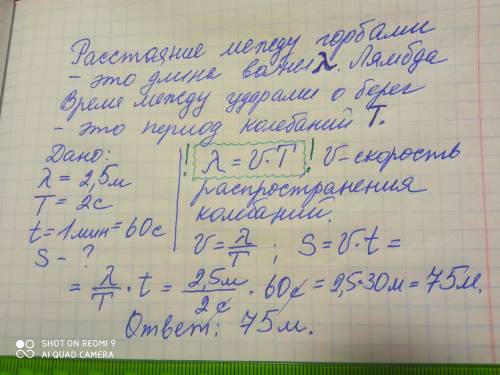 Расстояние между горбами
- это длина волны λ. Лямбда
Время между ударами о берег
- это период колебаний T.
Дано:
λ = 2,5м
T = 2с
t = 1мин = 60с
S - ?
! λ = υ·T ! υ-скорость
распространения
колбаний.
υ = λ/T ; S = υ·t =
= λ/T · t = 2,5м/2с · 60с = 2,5·30м = 75м.
Ответ: 75м.
SHOT ON REDMI 9
AI QUAD CAMERA